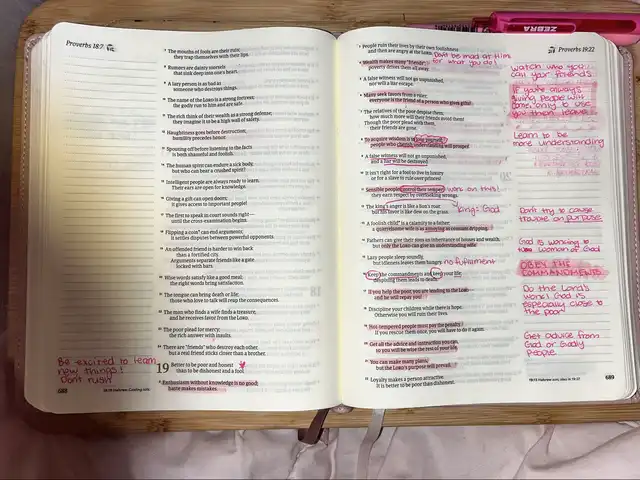 Proverbs 18:7
7 The mouths of fools are their ruin;
they trap themselves with their lips.
8 Rumors are dainty morsels
that sink deep into one's heart.
9 A lazy person is as bad as
someone who destroys things.
10 The name of the LORD is a strong fortress;
the godly run to him and are safe.
11 The rich think of their wealth as a strong defense;
they imagine it to be a high wall of safety.
12 Haughtiness goes before destruction;
humility precedes honor.
13 Spouting off before listening to the facts
is both shameful and foolish.
14 The human spirit can endure a sick body,
but who can bear a crushed spirit?
15 Intelligent people are always ready to learn.
Their ears are open for knowledge.
16 Giving a gift can open doors;
it gives access to important people!
17 The first to speak in court sounds right—
until the cross-examination begins.
18 Flipping a coin* can end arguments;
it settles disputes between powerful opponents.
19 An offended friend is harder to win back
than a fortified city.
Arguments separate friends like a gate
locked with bars.
20 Wise words satisfy like a good meal;
the right words bring satisfaction.
21 The tongue can bring death or life;
those who love to talk will reap the consequences.
22 The man who finds a wife finds a treasure,
and he receives favor from the LORD.
23 The poor plead for mercy;
the rich answer with insults.
24 There are "friends" who destroy each other,
but a real friend sticks closer than a brother.
19 Better to be poor and honest
than to be dishonest and a fool.
2 Enthusiasm without knowledge is no good;
haste makes mistakes.
Be excited to learn
new things!
Don't rush
688
ZEBRA
Proverbs 19:22
3 People ruin their lives by their own foolishness
and then are angry at the LORD.
Don't be mad at Him
for what you do!
4 Wealth makes many "friends";
poverty drives them all away.
5 A false witness will not go unpunished,
nor will a liar escape.
6 Many seek favors from a ruler;
everyone is the friend of a person who gives gifts!
7 The relatives of the poor despise them;
how much more will their friends avoid them!
Though the poor plead with them,
their friends are gone.
8 To acquire wisdom is to love oneself;
people who cherish understanding will prosper.
9 A false witness will not go unpunished,
and a liar will be destroyed.
10 It isn't right for a fool to live in luxury
or for a slave to rule over princes!
11 Sensible people control their temper;
they earn respect by overlooking wrongs.
work on this!
12 The king's anger is like a lion's roar,
but his favor is like dew on the grass.
King= God
13 A foolish child* is a calamity to a father;
a quarrelsome wife is as annoying as constant dripping.
14 Fathers can give their sons an inheritance of houses and wealth,
but only the LORD can give an understanding wife.
15 Lazy people sleep soundly,
but idleness leaves them hungry.
16 Keep the commandments and keep your life;
despising them leads to death.
17 If you help the poor, you are lending to the LORD—
and he will repay you!
18 Discipline your children while there is hope.
Otherwise you will ruin their lives.
19 Hot-tempered people must pay the penalty.
If you rescue them once, you will have to do it again.
20 Get all the advice and instruction you can,
so you will be wise the rest of your life.
21 You can make many plans,
but the LORD's purpose will prevail.
22 Loyalty makes a person attractive.
It is better to be poor than dishonest.
watch who you
call your friends
If you're always
giving people will
Learn to be
more understanding
Don't try to cause
trouble on purpose
God is working
woman of God
OBEY THE
COMMANDMENTS
Do the Lord's
work God is
especially close to
the poor
Get advice from
God or Godly
people
689